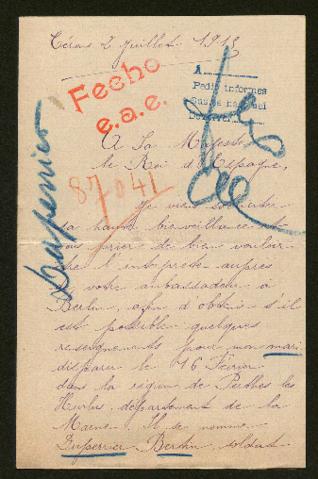 Céras 2 Juillet 1915
Fecho
e.a.e.
A
Pedir informes
A Sa Majesté
le Roi d'Espagne,
87041
Je viens solliciter
sa haute bienveillance et
vous prier de bien vouloir
être l'interprète auprès
votre ambassadeur à
Berlin, afin d'obtenir s'il
est possible quelques
renseignements pour mon mari
disparu le 16 Février
dans la région de Perthes les
Hurlus département de la
Marne. Il se nomme
Duperrier Bertin, soldat
Duperrier